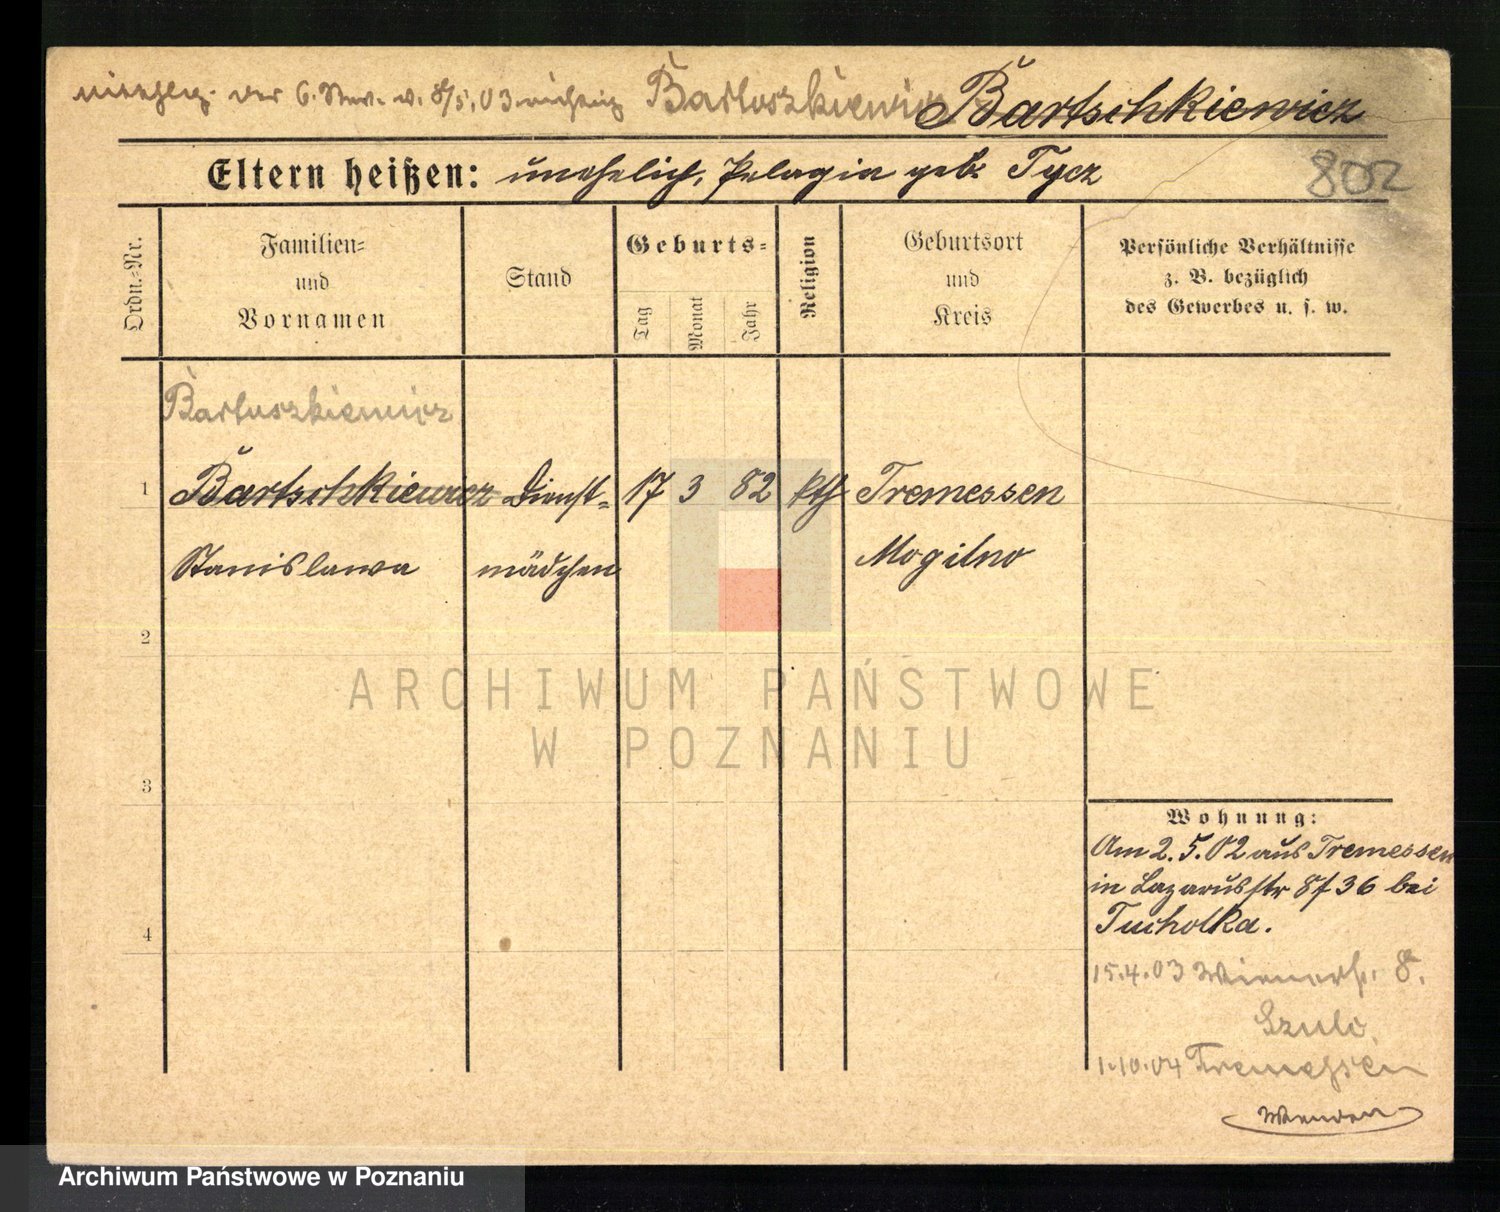 der G. v. 8/5.03 Bartoszkiewicz Bartschkiewicz
Eltern heißen: unehelich, Pelagia geb. Tycz
802
Ordn.-Nr.
Familien-
und
Vornamen
Stand
Geburts-
Tag
Monat
Jahr
Religion
Geburtsort
und
Kreis
Persönliche Verhältnisse
z. B. bezüglich
des Gewerbes u. s. w.
Bartuszkiewicz
1 Bartschkiewicz Dienst- 17 3 82 kth Tremessen
Stanislawa mädchen Mogilno
2
ARCHIWUM PAŃSTWOWE
W POZNANIU
3
Wohnung:
Am 2.5.02 aus Tremessen
in Lazarusstr 8 f 36 bei
Tucholka.
4
15.4.03 Wienerstr. 8.
Szulc.
1.10.04 Tremessen
Wenden
Archiwum Państwowe w Poznaniu